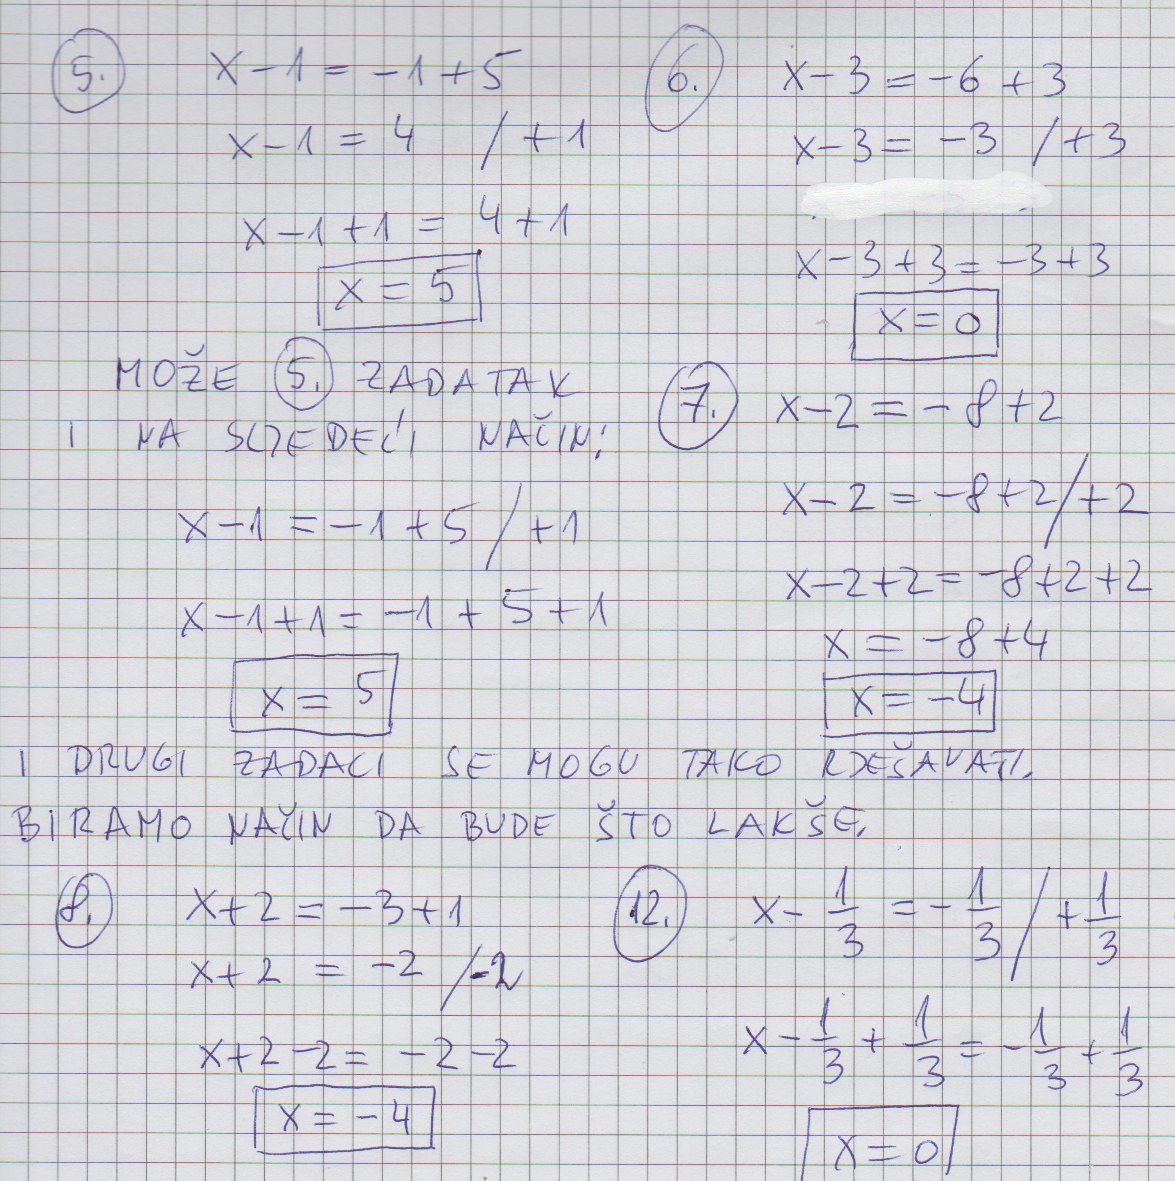 5.
x-1=-1+5
x-1=4 /+1
x-1+1=4+1
x=5
MOŽE 5. ZADATAK
I NA SLJEDEĆI NAČIN:
x-1=-1+5/+1
x-1+1=-1+5+1
x=5
6.
x-3=-6+3
x-3=-3 /+3
x-3+3=-3+3
x=0
7.
x-2=-8+2
x-2=-8+2/+2
x-2+2=-8+2+2
x=-8+4
x=-4
I DRUGI ZADACI SE MOGU TAKO RJEŠAVATI.
BIRAMO NAČIN DA BUDE ŠTO LAKŠE.
8.
x+2=-3+1
x+2=-2 /-2
x+2-2=-2-2
x=-4
12.
x-1/3=-1/3 / +1/3
x-1/3+1/3=-1/3+1/3
x=0